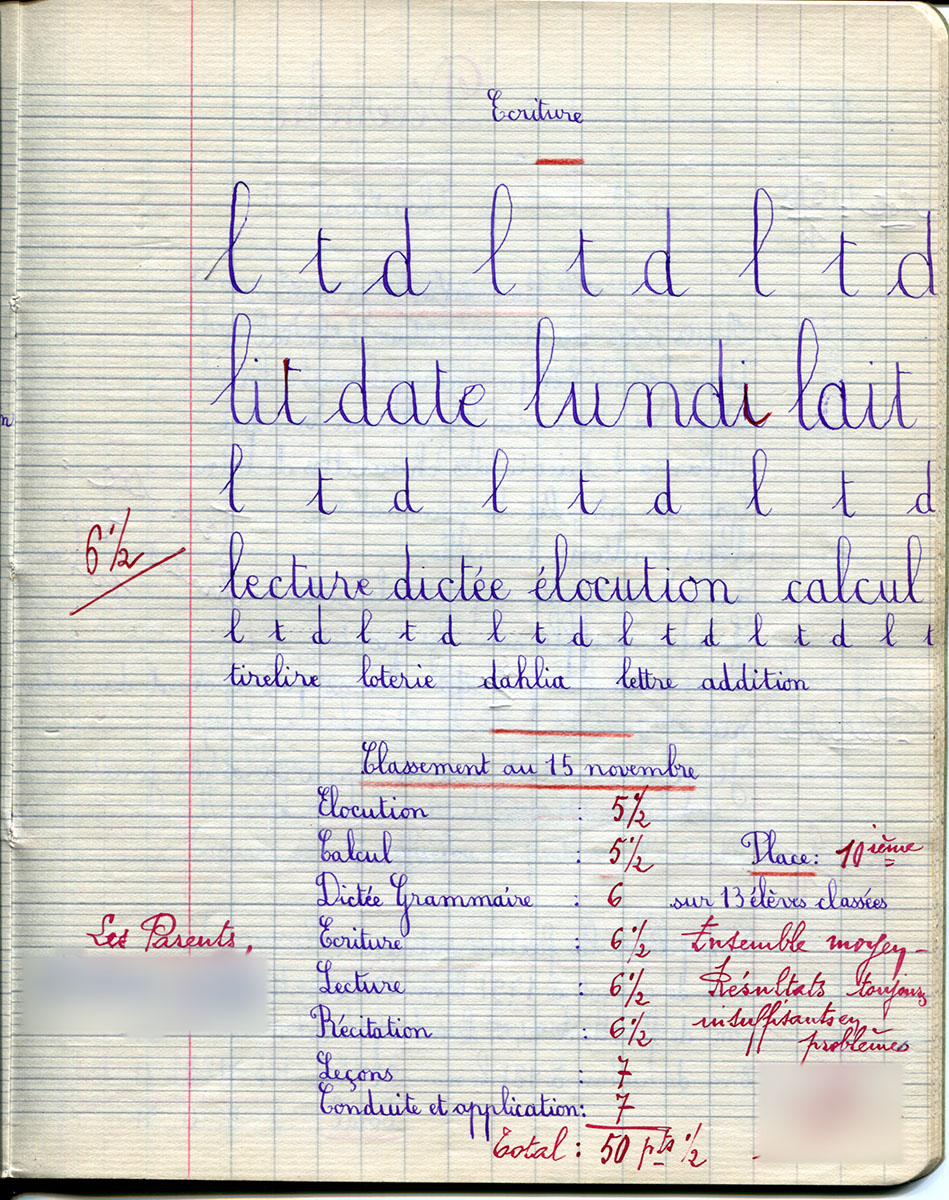 Ecriture
l t d l t d l t d
lit date lundi lait
l t d l t d l t d
6 1/2
lecture dictée élocution calcul
l t d l t d l t d l t d l t d l t
tirelire loterie dahlia lettre addition
Classement au 15 novembre
Elocution : 5 1/2
Calcul : 5 1/2 Place: 10ième
Dictée Grammaire : 6 sur 13 élèves classées
Les Parents, Ecriture : 6 1/2 Ensemble moyen -
Lecture : 6 1/2 Résultats toujours
Récitation : 6 1/2 insuffisants en
problèmes
Leçons : 7
Conduite et application: 7
Total : 50 pts 1/2